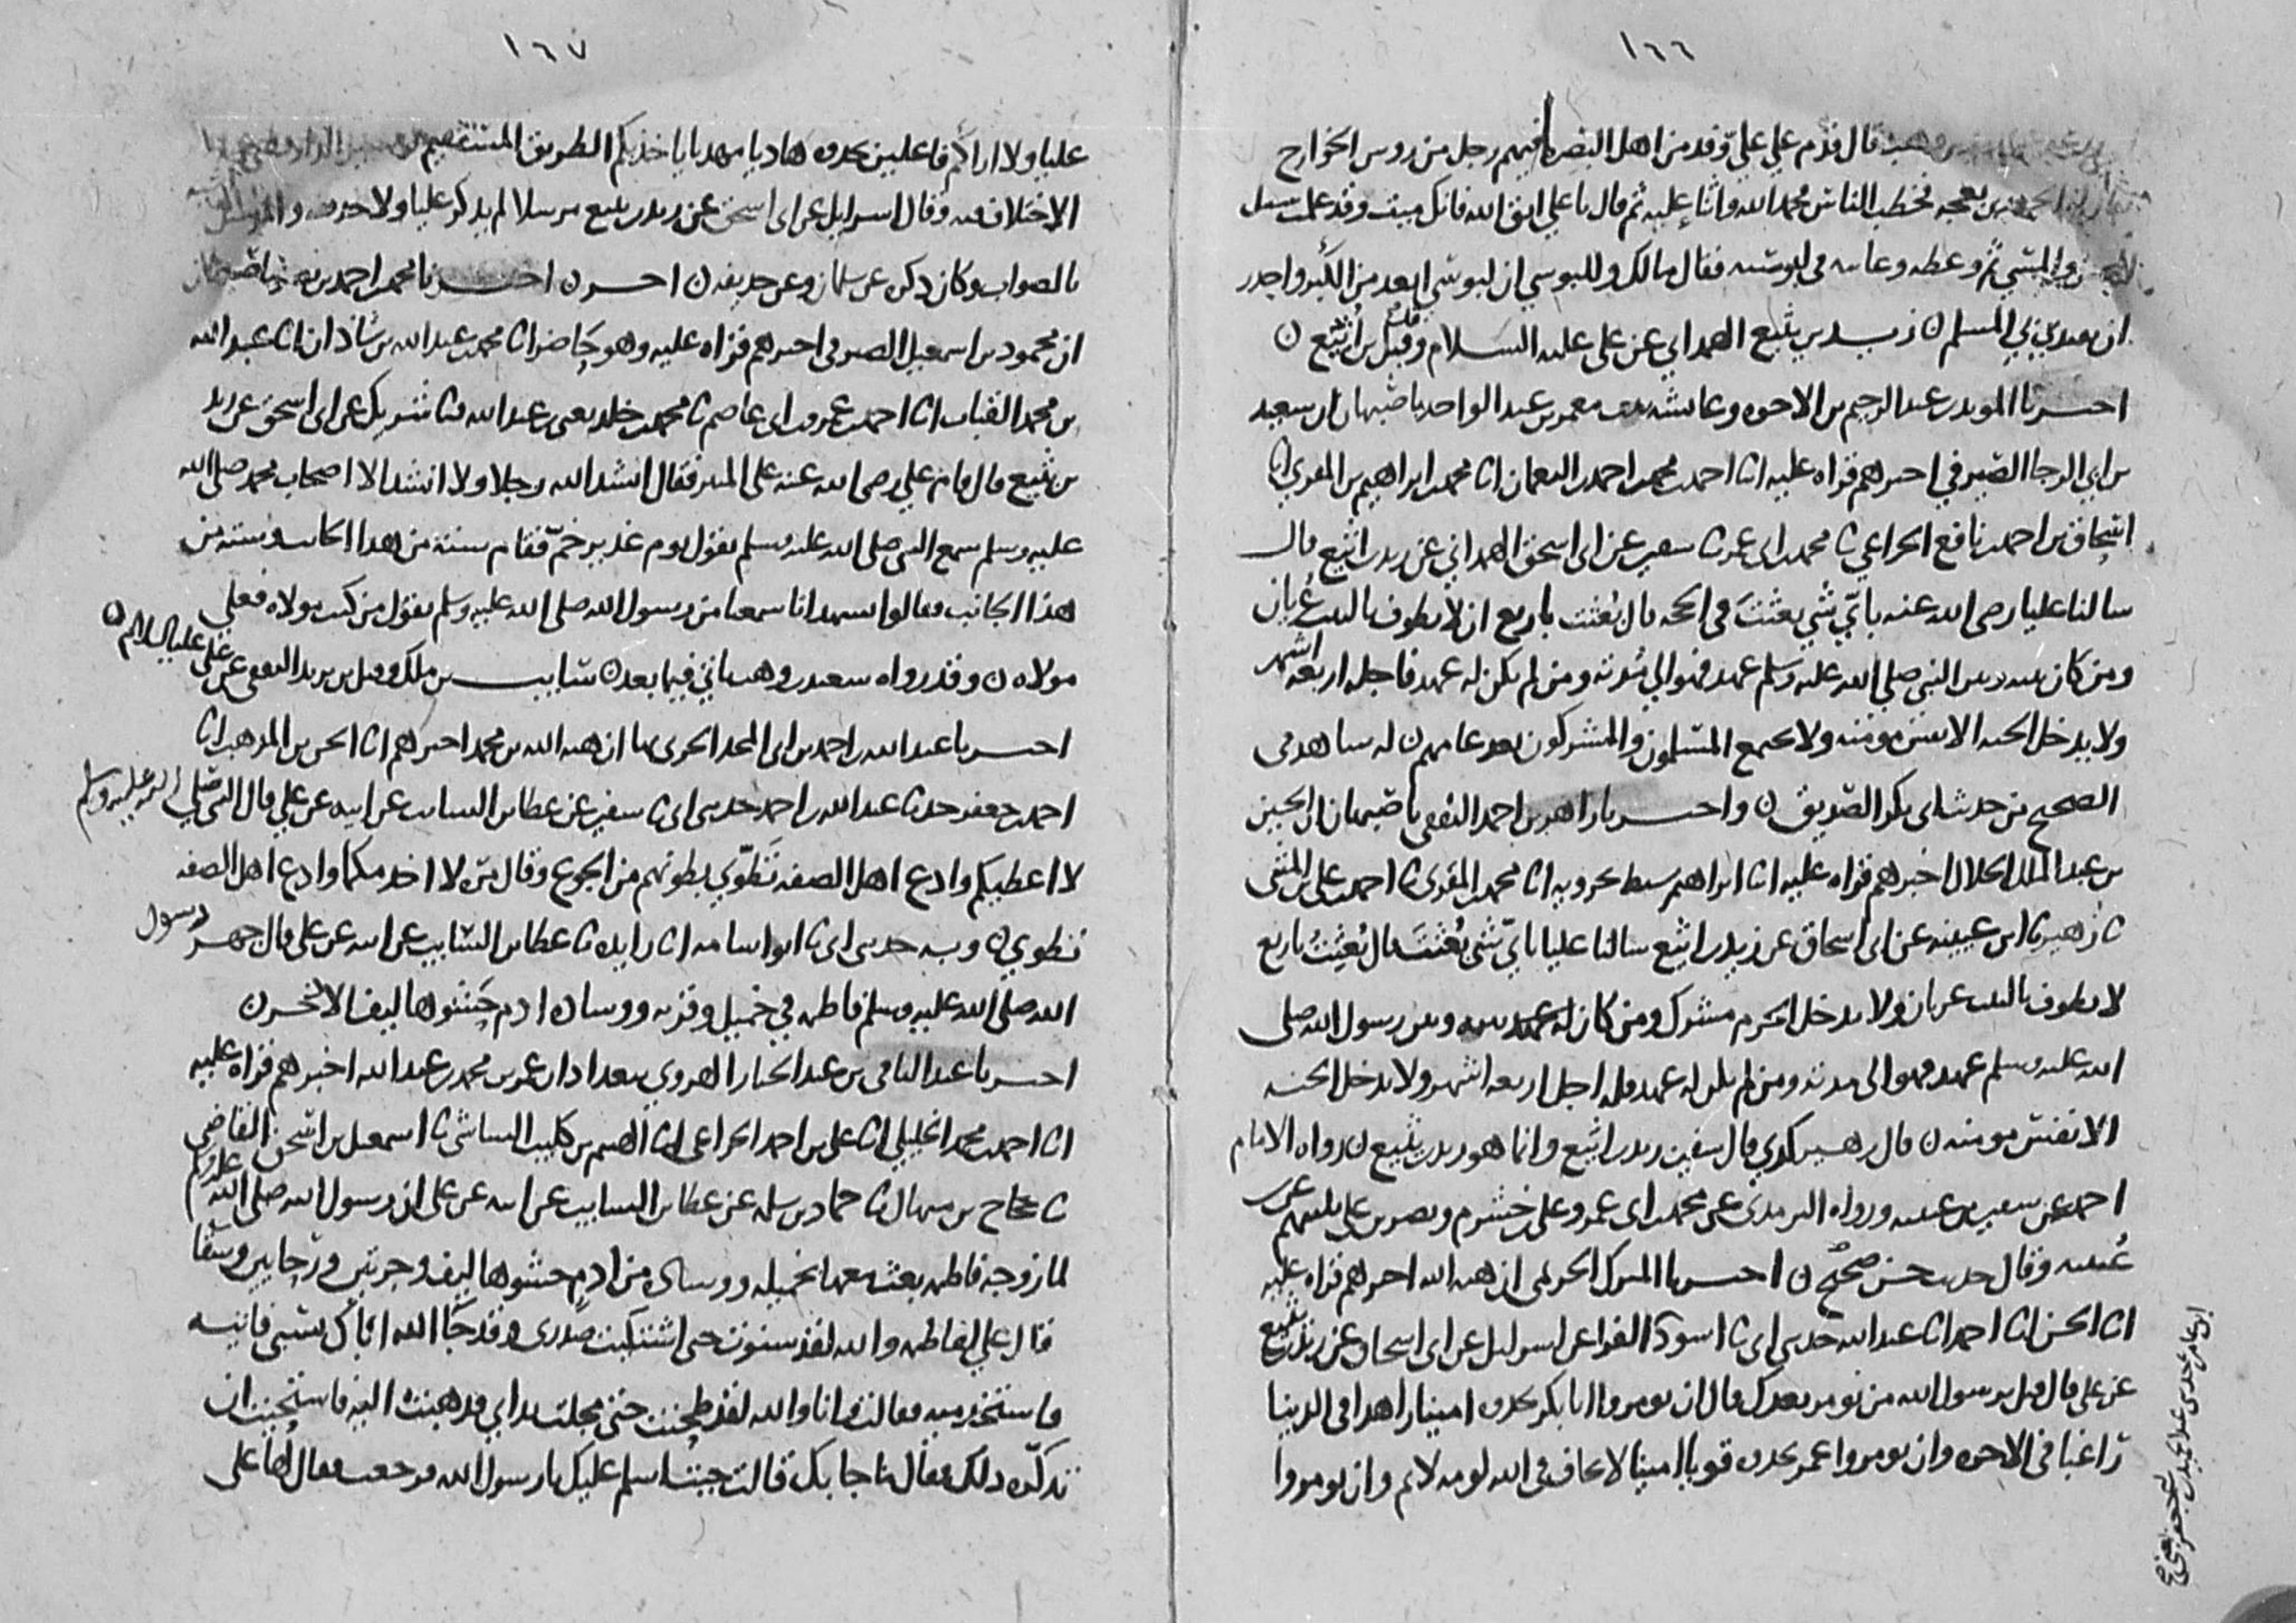 ١٦٦
قال قدم علي عليّ وفد من اهل البصرة فيهم رجل من روس الخوارج
بعجه فخطب الناس فحمد الله واثنا عليه ثم قال يا علي اتق الله فانك ميت وقد علمت سبيل
ثم وعظه وعاتبه في لبوسه فقال مالك وللبوسي ان لبوسي ابعد من الكبر واجدر
ان يقتدي بي المسلم ن زيد بن يثيع الهمداني عن علي عليه السلام وقيل بن اثيع ن
اخبرنا المويد بن عبد الرحيم بن الاخوه وعائشه بنت معمر بن عبد الواحد باصبهان ان سعيد
بن ابي الرجا الصيرفي اخبرهم قراه عليه انا احمد بن محمد بن احمد بن النعمان انا محمد بن ابراهيم بن المقري انا
اسحاق بن احمد بن نافع الخزاعي ثا محمد بن ابي عمر ثا سفين عن ابي اسحق الهمداني عن زيد بن اثيع قال
سالنا عليا رضي الله عنه باي شي بعثت في الحجه قال بُعثت باربع ان لا يطوف بالبيت عُريان
ومن كان بينه وبين النبي صلى الله عليه وسلم عهد فهو الي مُدته ومن لم يكن له عهد فاجله اربعه اشهر
ولا يدخل الجنه الا نفس مومنه ولا يجتمع المسلمون والمشركون بعد عامهم ن له شاهد في
الصحيح من حديث ابي بكر الصديق ن واخبرنا زاهر بن احمد الثقفي باصبهان ان الحسين
بن عبد الملك الخلال اخبرهم قراه عليه انا ابراهيم سبط بحرويه انا محمد بن المقري ثا احمد بن علي بن المثنى
ثا زهير ثا ابن عيينه عن ابي اسحاق عن زيد بن اثيع سالنا عليا باي شي بُعثتَ قال بُعثتُ باربع
لا يطوف بالبيت عريان ولا يدخل الحرم مشرك ومن كان له عهد بينه وبين رسول الله صلى
الله عليه وسلم عهد فهو الى مدته ومن لم يكن له عهد فله اجل اربعه اشهر ولا يدخل الجنه
الا نفس مومنه ن قال زهير كذي قال سفين زيد بن اثيع وانما هو زيد بن يثيع ن رواه الامام
احمد عن سفين بن عيينه ورواه الترمذي عن محمد بن ابي عمر وعلي بن خشرم ونصر بن علي ثلثتهم عن
عُيينه وقال حديث حسن صحيح ن اخبرنا المبرك الحريمي ان هبه الله اخبرهم قراه عليه
انا الحسن انا احمد انا عبد الله حدثني ابي ثا اسود ثا الفرا عن اسرائيل عن ابي اسحاق عن زيد بن يثيع
عن علي قال قيل يرسول الله من نومر بعدك قال ان تومروا ابا بكر تجدوه امينا زاهدا في الدنيا
راغبا في الاخره وان تومروا عمر تجدوه قويا امينا لا يخاف في الله لومه لائم وان تومروا
١٦٧
عليا ولا اراكم فاعلين تجدوه هاديا مهديا ياخذ بكم الطريق المستقيم
الاختلاف فيه وقال اسرايل عن ابي اسحق عن زيد بن يثيع مرسلا لم يذكر عليا ولا حذيفه والمرسل
بالصواب وكان ذكره عن سلمان وعن حذيفه ن اخر ن اخبرنا محمد بن احمد بن نصر باصبهان
ان محمود بن اسمعيل الصيرفي اخبرهم قراه عليه وهو حاضر انا محمد بن عبد الله بن شاذان انا عبد الله
بن محمد القباب انا احمد بن عمرو بن ابي عاصم ثا محمد بن خلد يعني بن عبد الله ثنا شريك عن ابي اسحق عن زيد
بن يثيع قال قام علي رضي الله عنه على المنبر فقال انشد الله رجلا ولا انشد الا اصحاب محمد صلى الله
عليه وسلم سمع النبي صلى الله عليه وسلم يقول يوم غدير خمّ فقام ستة من هذا الجانب وسته من
هذا الجانب فقالوا نشهد انا سمعنا من رسول الله صلى الله عليه وسلم يقول من كنت مولاه فعلي
مولاه ن وقد رواه سعيد بن وهب ياتي فيما بعد ن سايب بن ملك وقيل بن يزيد الثقفي عن علي عليه السلام ن
اخبرنا عبد الله بن احمد بن ابي المجد الحربي بها ان هبه الله بن محمد اخبرهم انا الحسن بن المذهب انا
احمد بن جعفر حدثنا عبد الله بن احمد حدثني ابي ثا سفين عن عطا بن السايب عن ابيه عن علي قال النبي صلى الله عليه وسلم
لا اعطيكم وادع اهل الصفه تَطوّي بطونهم من الجوع وقال مرّه لا اخدمكما وادع اهل الصفه
تطوي ن وبه حدثني ابي ثا ابو اسامه انا زايده ثا عطا بن السايب عن ابيه عن علي قال جهز رسول
الله صلى الله عليه وسلم فاطمه في خميل وقربه ووساده ادم حَشوها ليف الاذخر ن
اخبرنا عبد الباقي بن عبد الجبار الهروي ببغداد ان عمر بن محمد بن عبد الله اخبرهم قراه عليه
انا احمد بن محمد الخليلي انا علي بن احمد الخزاعي انا الهيثم بن كليب الشاشي ثا اسمعيل بن اسحق القاضي
ثا حجاج بن منهال ثا حماد بن سلمه عن عطا بن السايب عن ابيه عن علي ان رسول الله صلى الله عليه وسلم
لما زوجه فاطمه بعث معها بخميله ووساده من ادم حشوها ليف وجرتين ورحايين وسقا
فقال علي لفاطمه والله لقد سنوت حتى اشتكيت صدري وقد جا الله اباك بسبي فاتيه
فاستخدميه فقالت وانا والله لقد طحنت حتى مجلت يداي فذهبت اليه فاستحيت ان
تذكره ذلك فقال ما جا بك قالت جيت اسلم عليك يا رسول الله فرجعت فقال لها علي